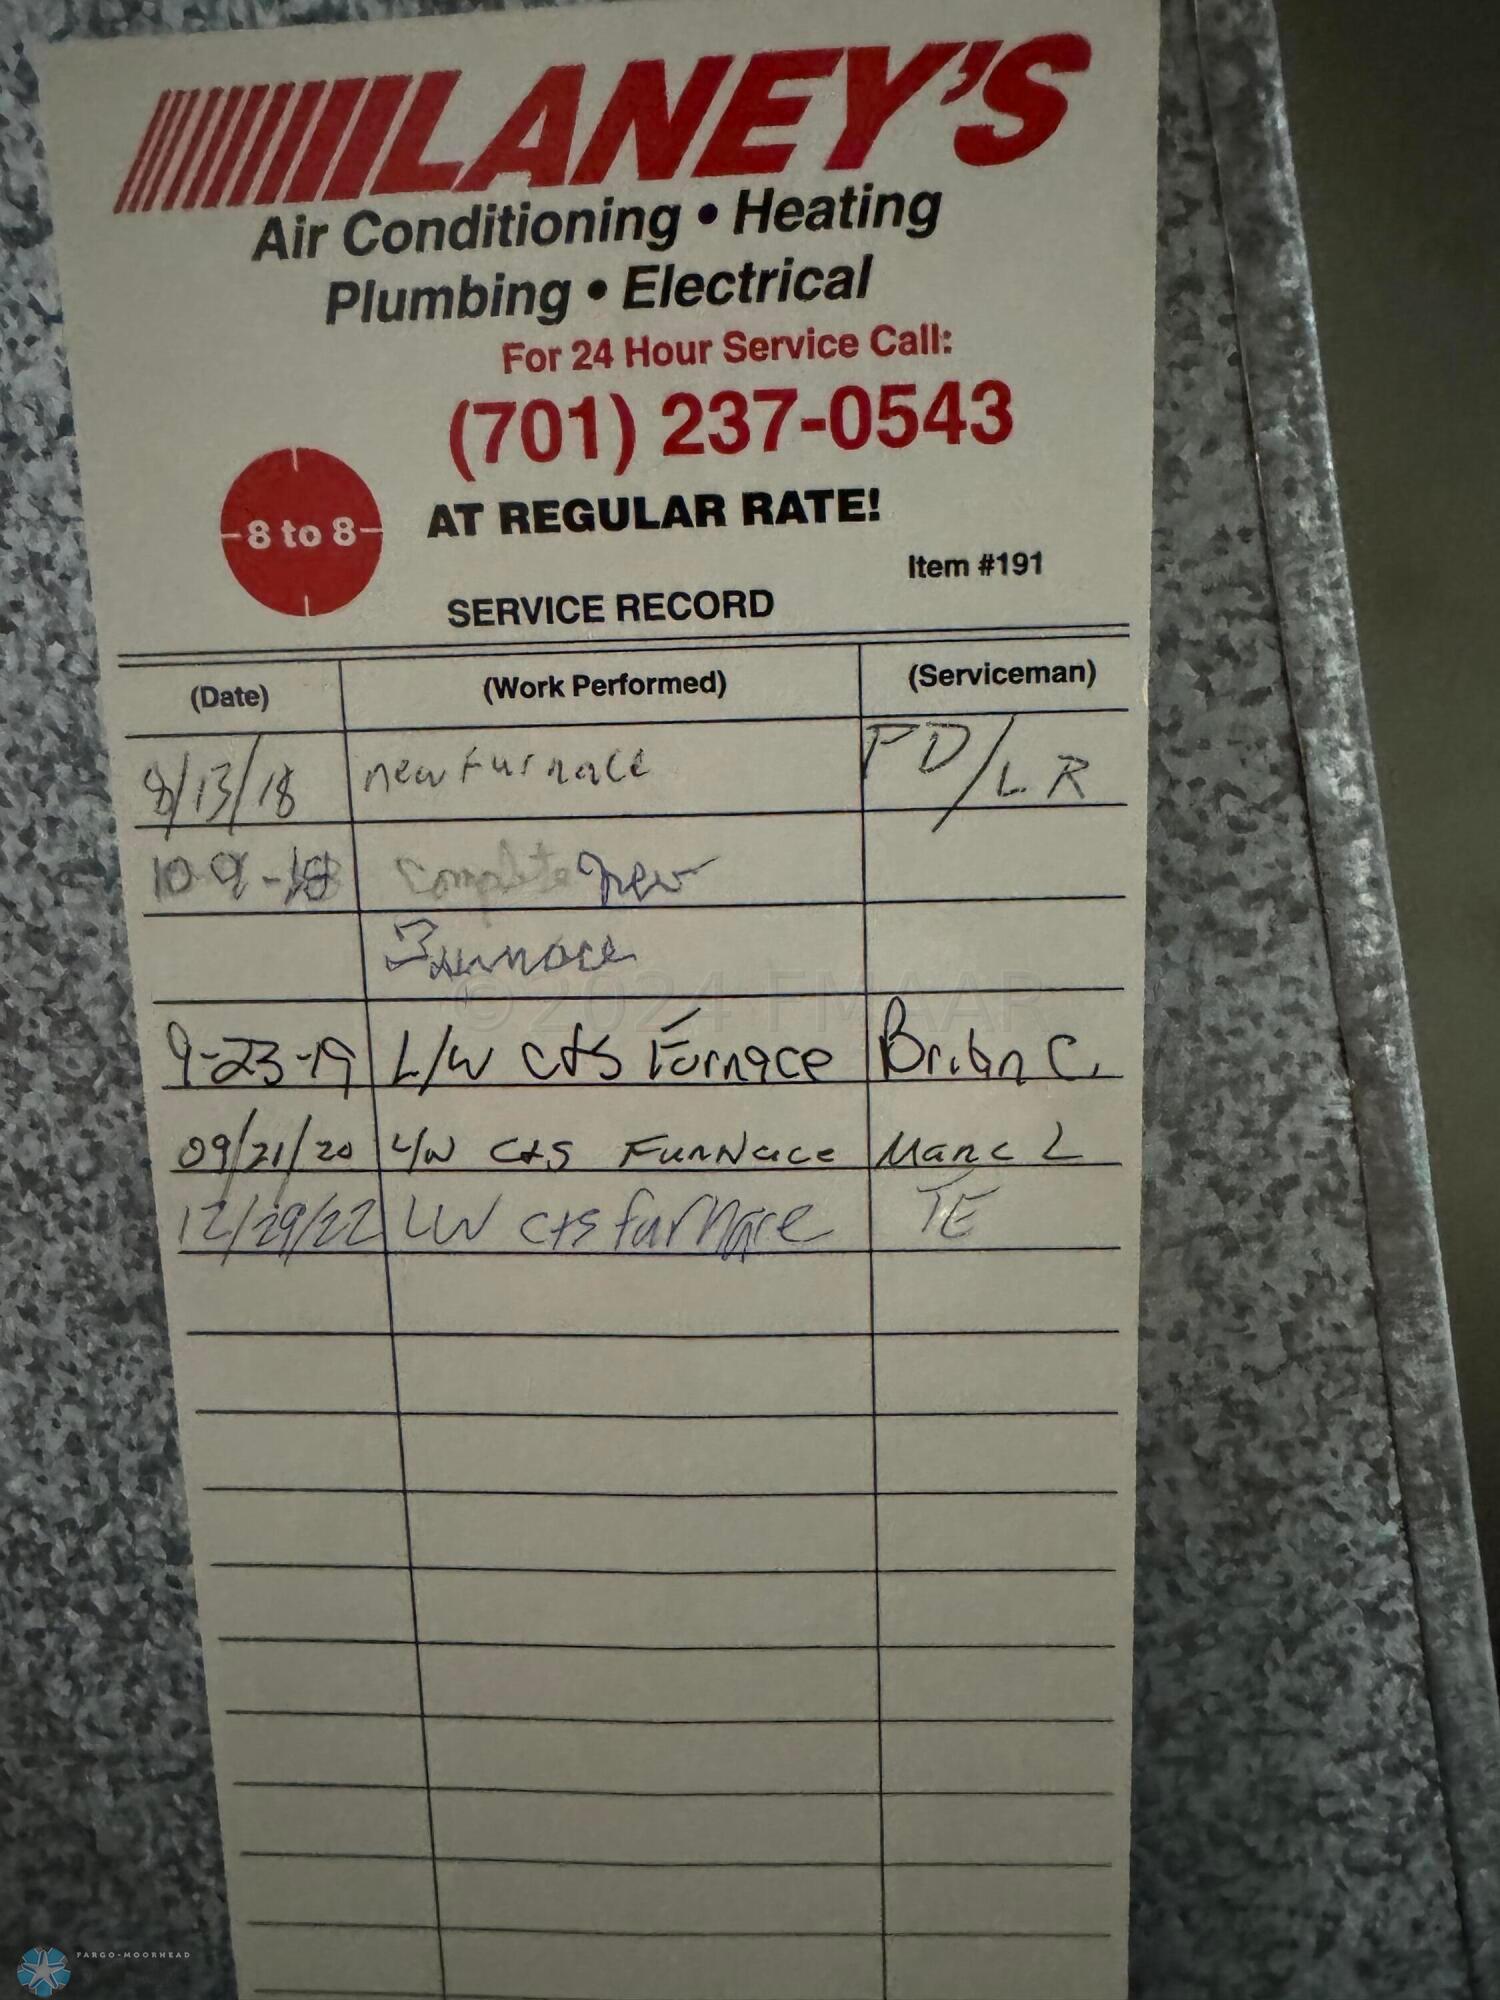 LANEY'S
Air Conditioning • Heating
Plumbing • Electrical
For 24 Hour Service Call:
(701) 237-0543
8 to 8
AT REGULAR RATE!
Item #191
SERVICE RECORD
(Date) (Work Performed) (Serviceman)
8/13/18 new furnace PD/LR
10 9-18 Complete New
Furnace
9-23-19 L/W C+S Furnace Brian C.
09/21/20 L/W C+S Furnace Marc L
12/29/22 LW C+S furnace TE
©2024 FMAAR
FARGO-MOORHEAD